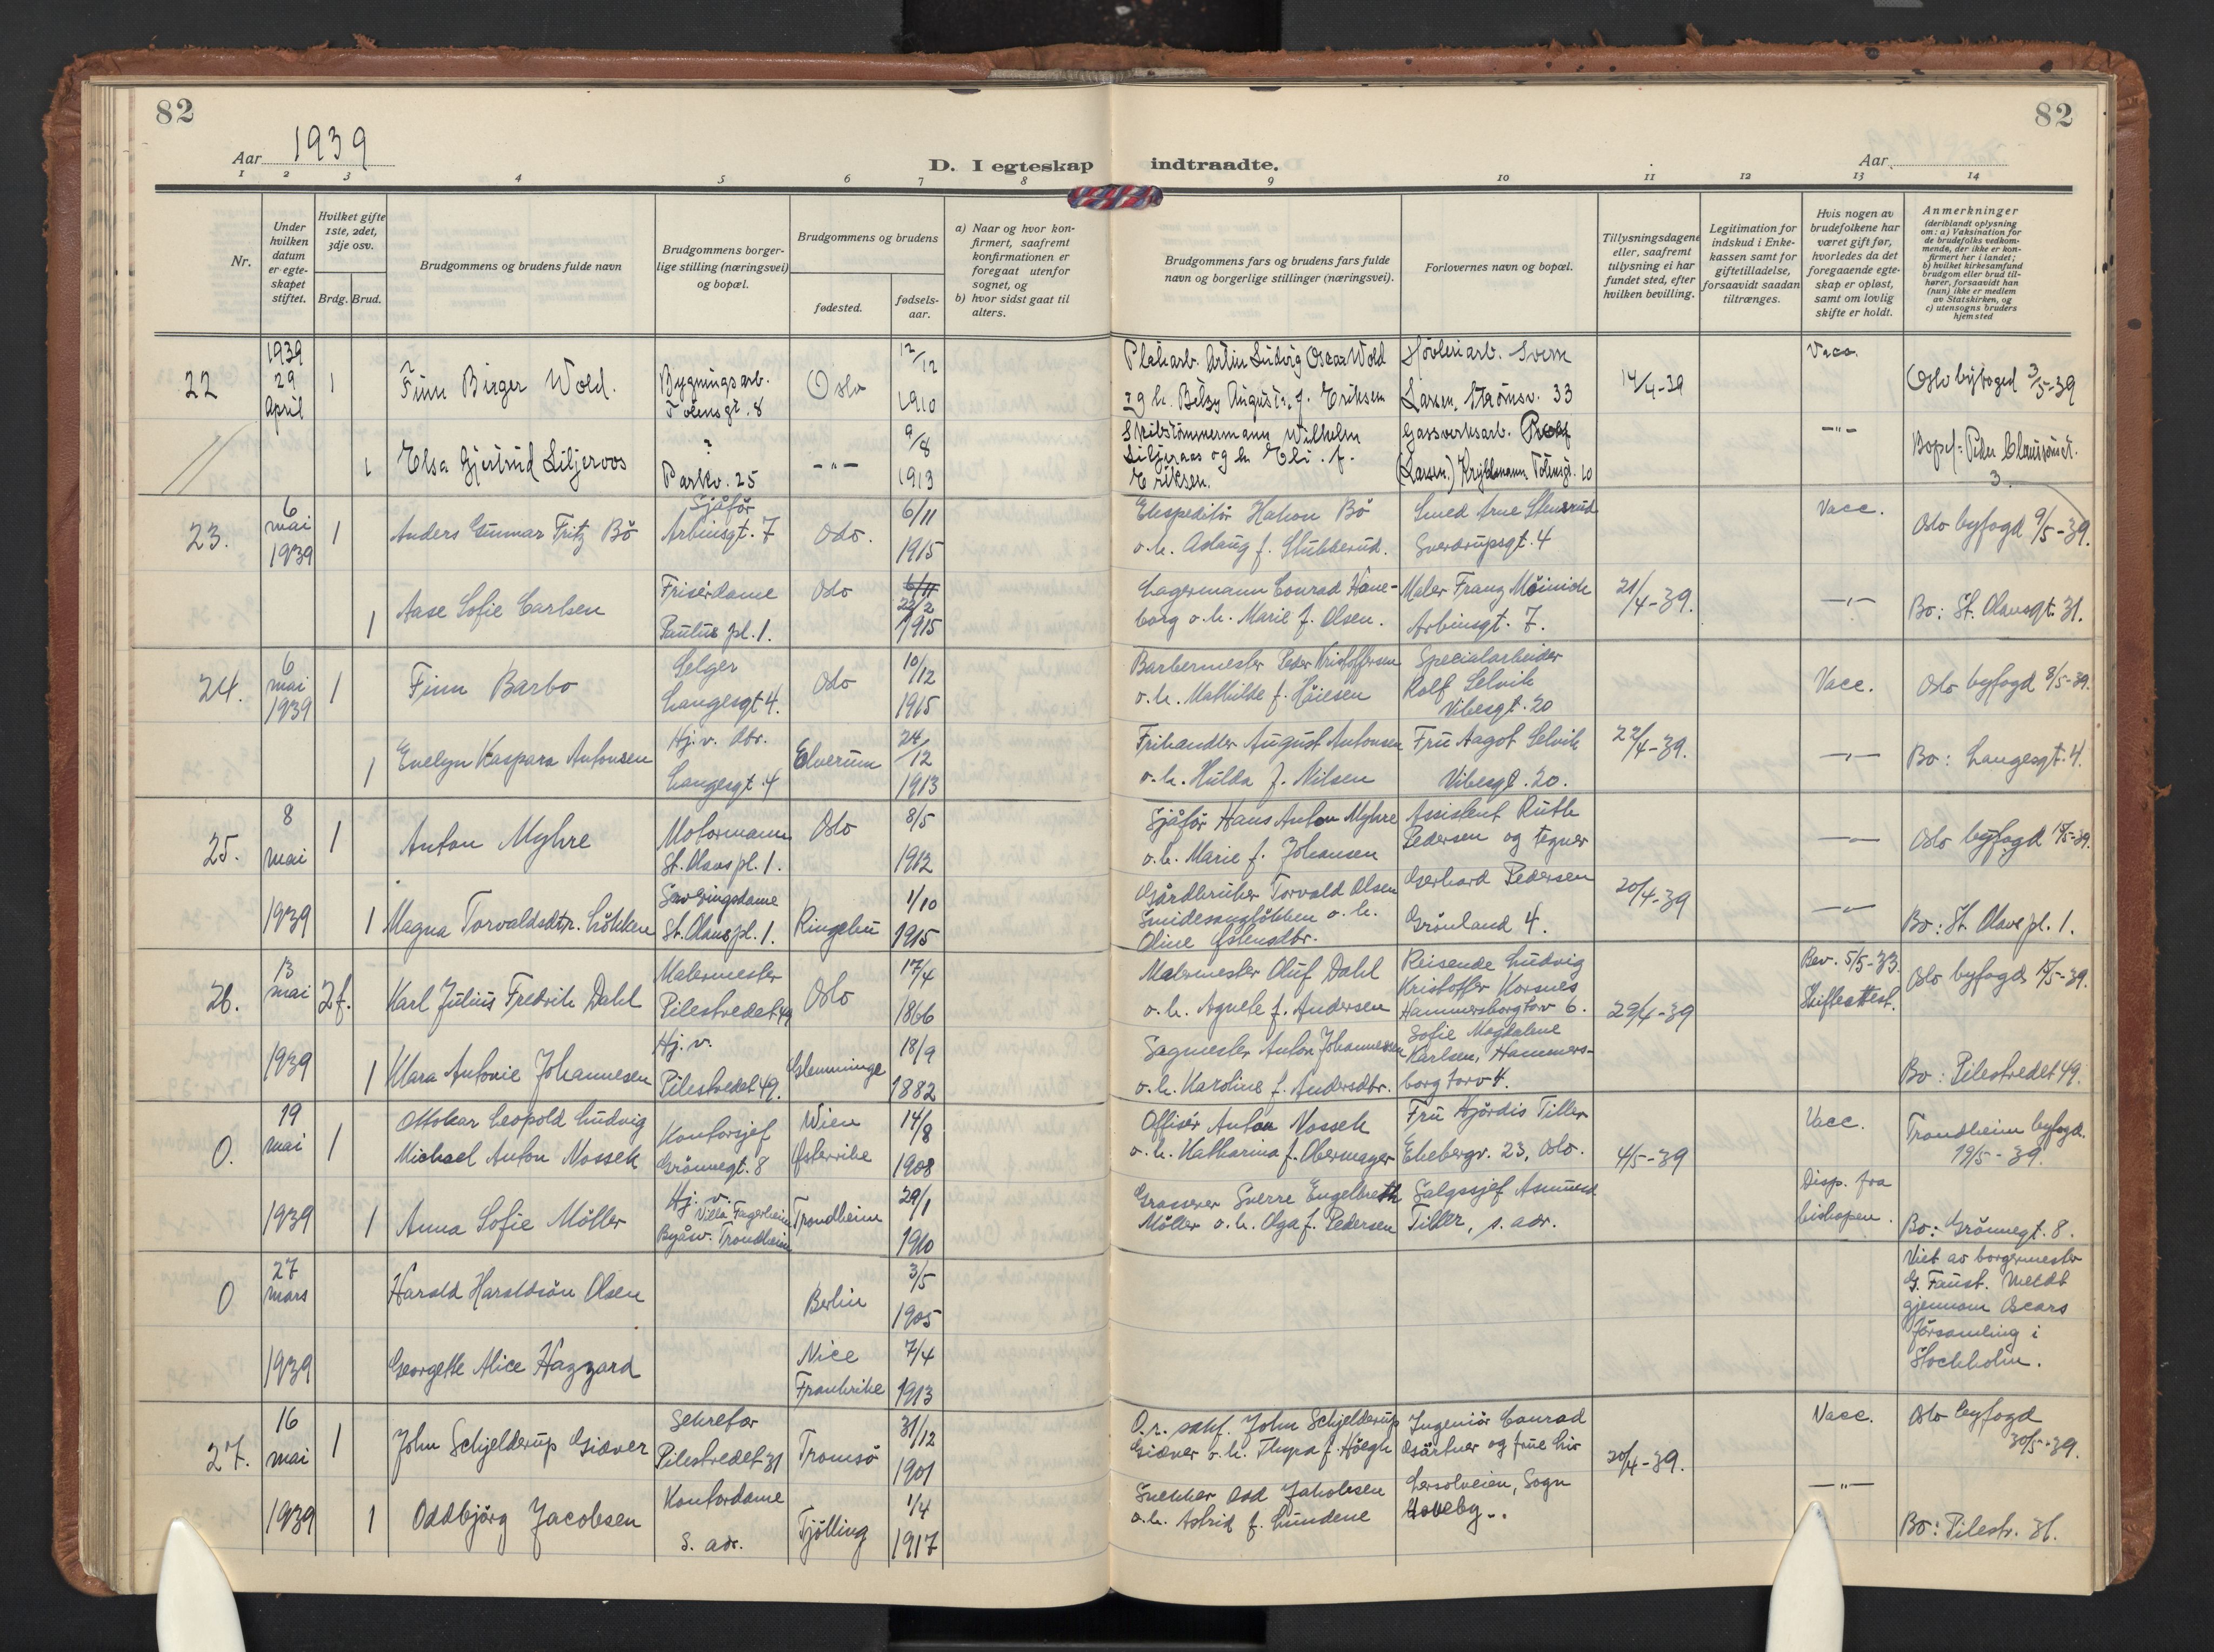 82
82
Aar 1939
D. I egteskap indtraadte.
Aar
1 2 3 4 5 6 7 8 9 10 11 12 13 14
Nr.
Under hvilken datum er egteskapet stiftet.
Hvilket gifte 1ste, 2det, 3dje osv.
Brdg. Brud.
Brudgommens og brudens fulde navn
Brudgommens borgerlige stilling (næringsvei) og bopæl.
Brudgommens og brudens
fødested.
fødselsaar.
a) Naar og hvor konfirmert, saafremt konfirmationen er foregaat utenfor sognet, og
b) hvor sidst gaat til alters.
Brudgommens fars og brudens fars fulde navn og borgerlige stillinger (næringsvei).
Forlovernes navn og bopæl.
Tillysningsdagene eller, saafremt tillysning ei har fundet sted, efter hvilken bevilling.
Legitimation for indskud i Enkekassen samt for giftetilladelse, forsaavidt saadan tiltrænges.
Hvis nogen av brudefolkene har været gift før, hvorledes da det foregaaende egteskap er opløst, samt om lovlig skifte er holdt.
Anmerkninger
(deriblandt oplysning om: a) Vaksination for de brudefolks vedkommende, der ikke er konfirmert her i landet; b) hvilket kirkesamfund brudgom eller brud tilhører, forsaavidt han (hun) ikke er medlem av Statskirken, og c) utensogns bruders hjemsted
22
1939 29 April
1
Finn Birger Wold.
Bygningsarb.
Oslo
12/12 1910
Oscar Wold
Eriksen
Høvleriarb.
Larsen, Strømsv. 33
14/4-39
Vacc.
Oslo byfoged 3/5-39
1
Elsa Gjertrud Liljeroos
?
Parkv. 25
-"-
9/8 1913
Skibstømmermann Wilhelm
Liljeroos og h. Eli f.
Eriksen.
Gassverksarb.
(Larsen)
-"-
3.
23.
6 mai 1939
1
Anders Gunnar Fritz Bö
Sjåför
Arbinsgt. 7
Oslo.
6/11 1915
Ekspeditör Hakon Bö
o. h. Aslaug f. Stubberud.
Smed Arne Stensrud
Sverdrupsgt. 4
Vacc.
Oslo byfogd 9/5-39.
1
Aase Sofie Carlsen
Frisérdame
Paulus pl. 1.
Oslo
6/11
22/2
1915
Lagermann Conrad Haneborg o. h. Marie f. Olsen.
Maler Franz Möinich
Arbinsgt. 7.
21/4-39.
-"-
Bo: St. Olavsgt. 31.
24.
6 mai 1939
1
Finn Barbo
Selger
Langesgt 4.
Oslo
10/12 1915
Barbermester Peder Kristoffersen
o. h. Mathilde f. Höiesen
Specialarbeider
Rolf Selvik
Vibesgt. 20
Vacc.
Oslo byfogd 8/5-39.
1
Evelyn Kaspara Antonsen
Hj. v. dtr.
Langesgt. 4
Elverum
24/12 1913
Frihandler August Antonsen
o. h. Hulda f. Nilsen
Fru Aagot Selvik
Vibesgt. 20.
22/4-39.
-"-
Bo: Langesgt. 4.
25.
8 mai 1939
1
Anton Myhre
Motormann
St. Olavs pl. 1.
Oslo
8/5 1912
Sjåför Hans Anton Myhre
o. h. Marie f. Johansen
Assistent Ruth
Pedersen og tegner
Gerhard Pedersen
Grönland 4.
-"-
Oslo byfogd 15/5-39.
1
Magna Torvaldsdtr. Lökken
Serveringsdame
St. Olavs pl. 1.
Ringebu
1/10 1915
Gårdbruker Torvald Olsen
o. h.
Oline Östensdtr.
20/4-39
-"-
Bo: St. Olavs pl. 1.
26.
13 mai 1939
2 f.
Karl Julius Fredrik Dahl
Malermester
Pilestredet 49
Oslo
17/4 1866
Malermester Oluf Dahl
o. h. Agnete f. Andersen
Reisende Ludvig
Kristoffer Korsnes
Hammersborg torv 6.
29/4-39
Bev. 5/5-33
Skifteattest.
Oslo byfogd 15/5-39.
1
Klara Antonie Johannesen
Hj. v.
Pilestredet 49.
Glemminge
18/9 1882
Sagmester Anton Johannesen
o. h. Karoline f. Andersdtr.
Sofie Magdalene
Karlsen, Hammersborg torv 4.
Bo: Pilestredet 49.
0.
19 mai 1939
1
Ottokar Leopold Ludvig
Michael Anton Nossek
Kontorsjef
Grönnegt. 8
Wien
Østerrike
14/8 1908
Offisér Anton Nossek
o. h. Katharina f. Obermayer
Fru Hjördis Tiller
Ekebergv. 23, Oslo.
4/5-39
Vacc.
Trondheim byfogd.
19/5-39.
1
Anna Sofie Möller
Hj. v.
Villa Fagerheim
Byåsv. Trondheim
Trondheim
29/1 1910
Grosserer Sverre Engelbreth
Möller o. h. Olga f. Pedersen
Salgssjef Asmund
Tiller, s. adr.
Disp. fra
biskopen.
Bo: Grönnegt. 8.
0
27 mars 1939
Harald Haraldsön Olsen
Berlin
3/5 1905
Viet av borgermester
G. Faust. Meldt
gjennom Oscars
församling i
Stockholm.
Georgette Alice Hazzard
Nice
Frankrike
7/4 1913
27.
16 mai 1939
1
John Schjelderup Giæver
Sekretær
Pilestredet 31
Tromsö
31/12 1901
O.r. sakf. John Schjelderup
Giæver o. h. Thyra f. Höegh
Ingeniör Conrad
Gärtner og frue Liv
Lersolveien, Sogn
Haveby..
20/4-39.
Vacc.
Oslo byfogd
30/5-39.
1
Oddbjörg Jacobsen
Kontordame
s. adr.
Tjölling
1/4 1917
Snekker Odd Jakobsen
o. h. Astrid f. Lundene
-"-
Bo: Pilestr. 31.